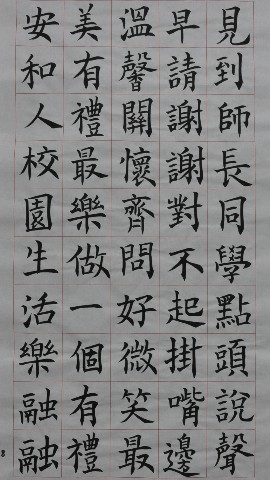 見到師長同學點頭說聲
早請謝謝對不起掛嘴邊
溫馨關懷齊問好微笑最
美有禮最樂做一個有禮
安和人校園生活樂融融
8